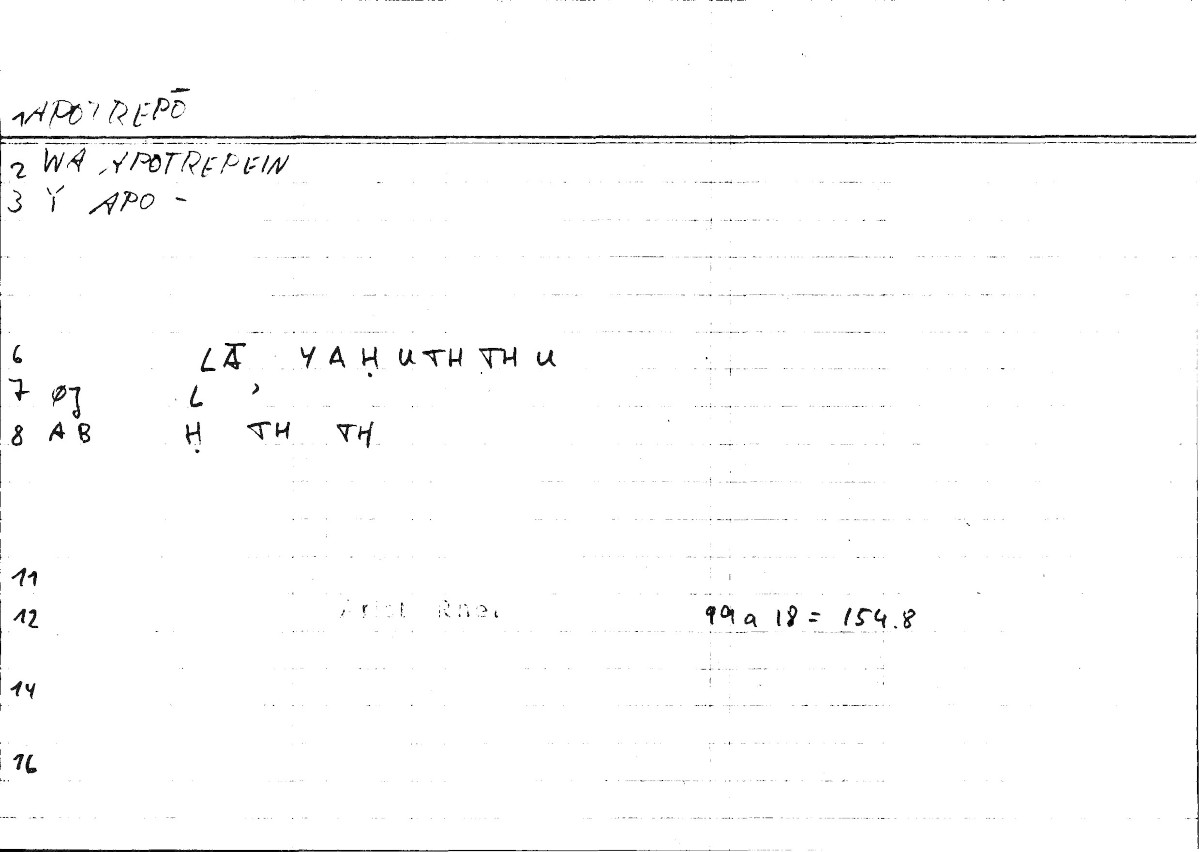 1 APOTREPŌ
2 WA YPOTREPEIN
3 Y APO -
6 LĀ YAḤUTHTHU
7 ØJ L ʾ
8 AB Ḥ TH TH
11
12 Arist Rhet 99a 18 = 154.8
14
16